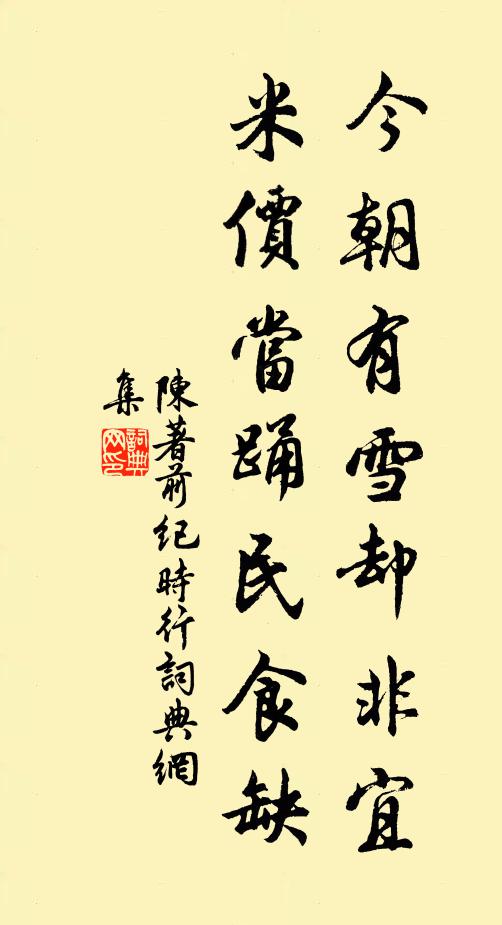 今朝有雪却非宜
米價當踊民食缺
陳著前紀時行詞典網
集
詞典
网印